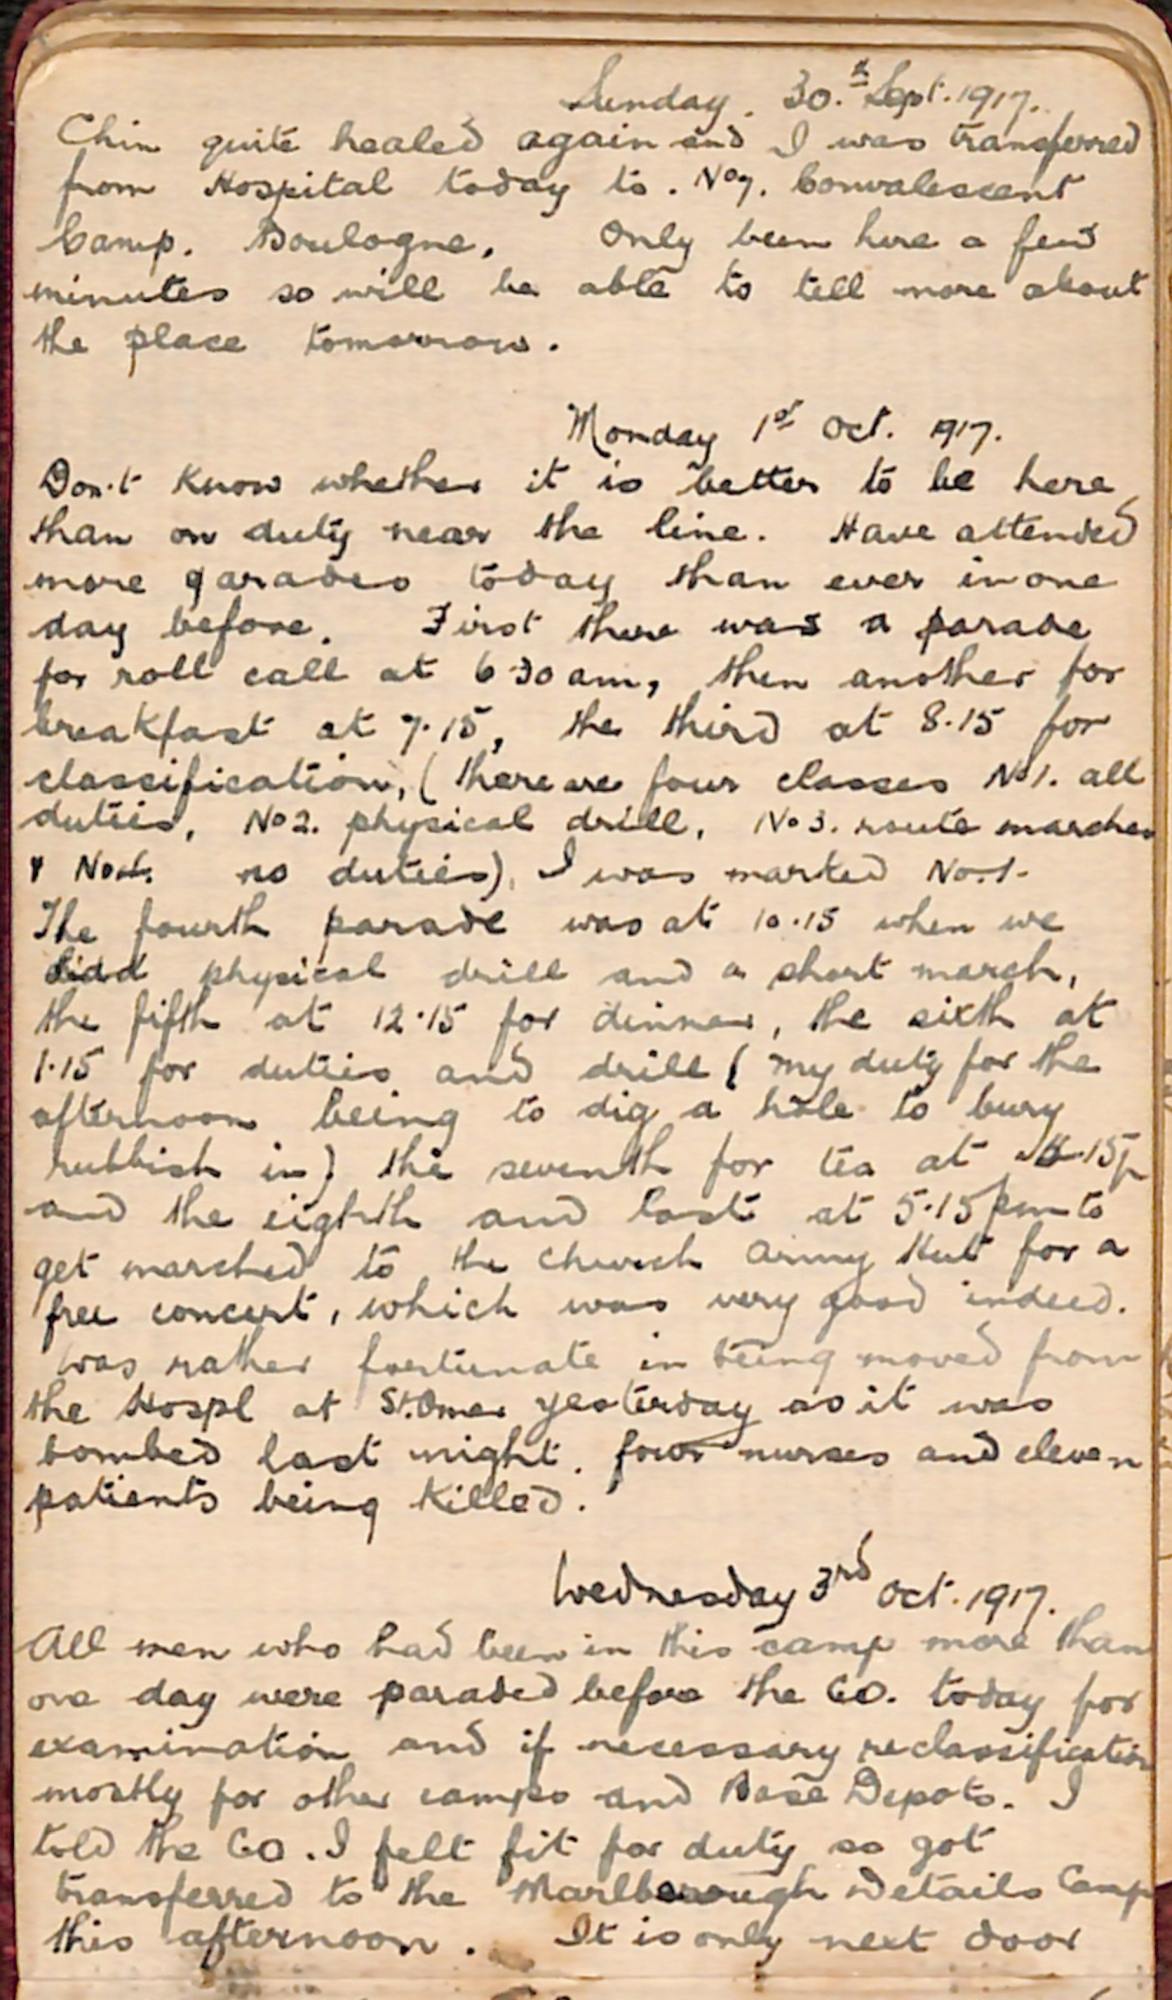 Sunday. 30.th Sept. 1917.
Chin quite healed again and I was transferred
from Hospital today to. No 7. Convalescent
Camp. Boulogne. Only been here a few
minutes so will be able to tell more about
the place tomorrow.
Monday 1st Oct. 1917.
Don't know whether it is better to be here
than on duty near the line. Have attended
more parades today than ever in one
day before. First there was a parade
for roll call at 6.30 am, then another for
breakfast at 7.15, the third at 8.15 for
classification, (there are four classes No 1. all
duties, No 2. physical drill, No 3. route marches
& No 4. no duties). I was marked No. 1.
The fourth parade was at 10.15 when we
did physical drill and a short march,
the fifth at 12.15 for dinner, the sixth at
1.15 for duties and drill (my duty for the
afternoon being to dig a hole to bury
rubbish in) the seventh for tea at 4.15p
and the eighth and last at 5.15 pm to
get marched to the Church Army Hut for a
free concert, which was very good indeed.
Was rather fortunate in being moved from
the Hospl at St. Omer yesterday as it was
bombed last night. four nurses and eleven
patients being killed.
Wednesday 3rd Oct. 1917.
All men who had been in this camp more than
one day were paraded before the C.O. today for
examination and if necessary reclassification
mostly for other camps and Base Depots. I
told the CO. I felt fit for duty so got
transferred to the Marlborough Details Camp
this afternoon. It is only next door